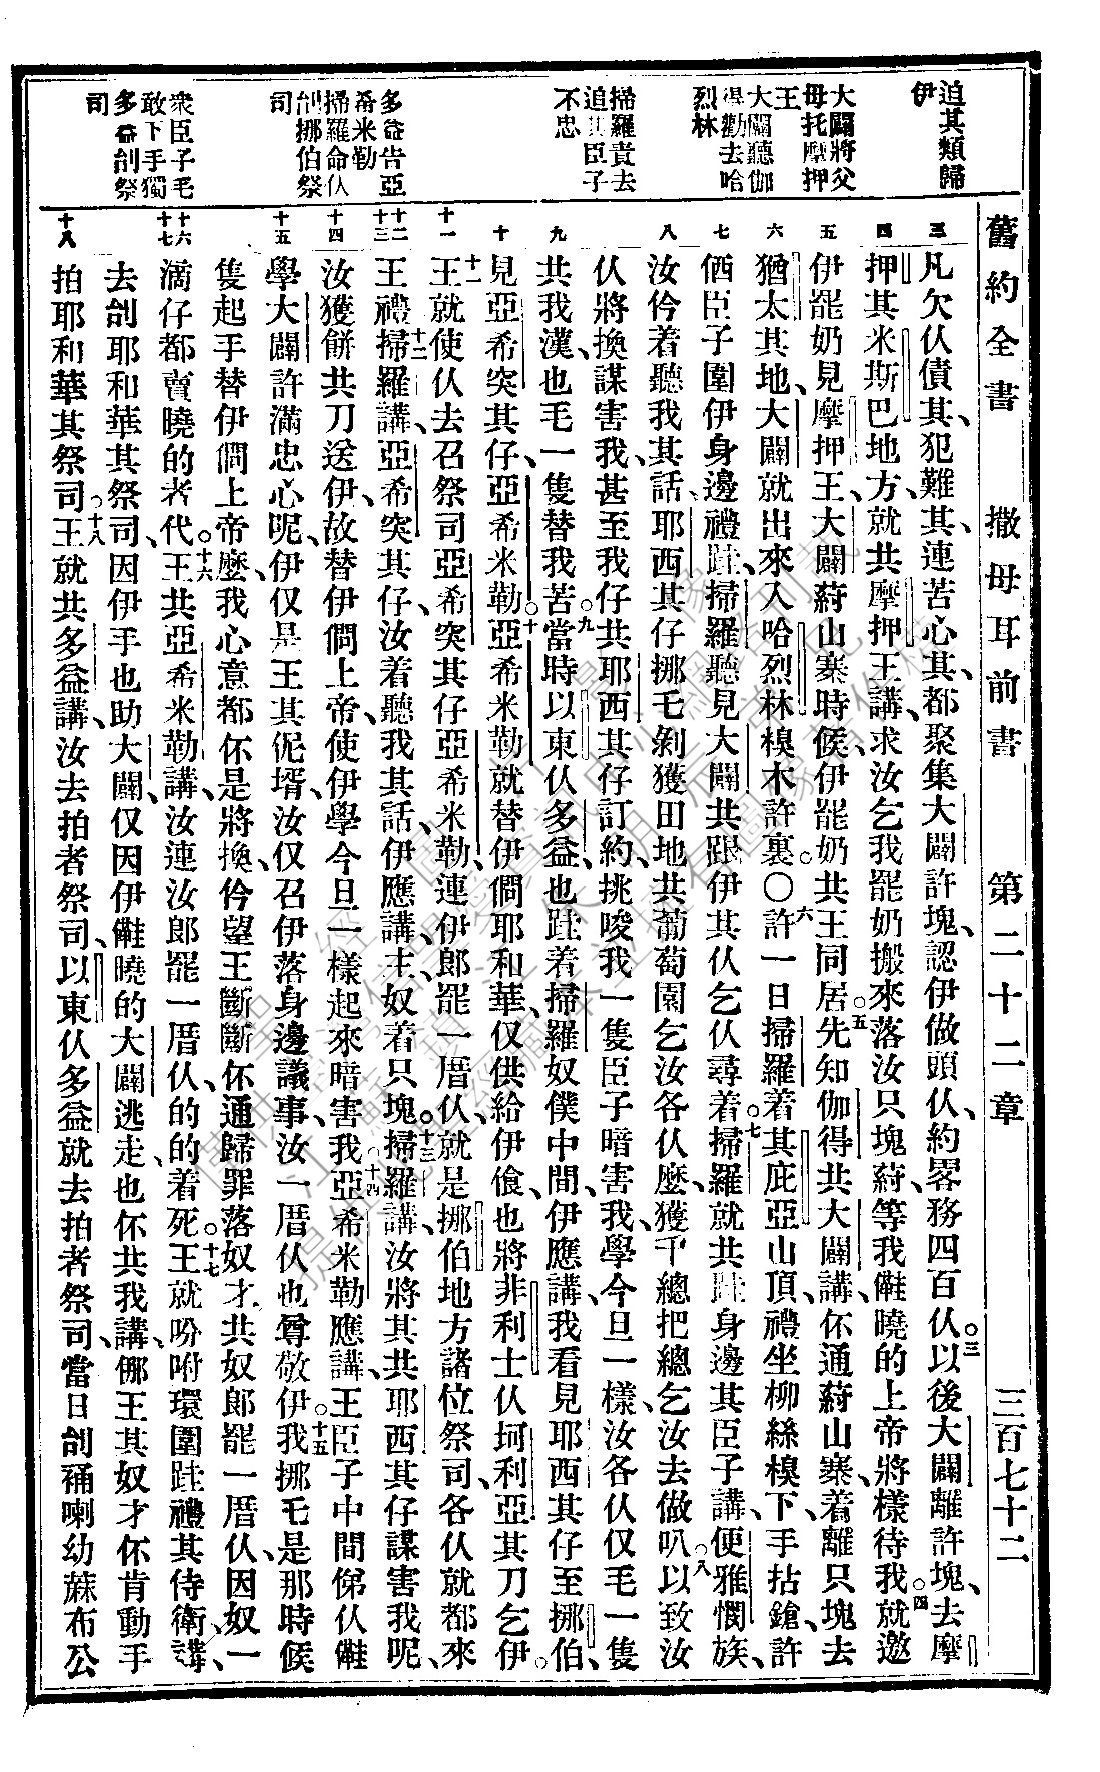 舊約全書　撒母耳前書　第二十二章　三百七十二
迫其類歸
伊
大闢將父
母托摩押
王
大闢聽伽
得勸去哈
烈林
掃羅責去
迫其臣子
不忠
多益告亞
希米勒
掃羅命仈
刣挪伯祭
司
衆臣子毛
敢下手獨
多益刣祭
司
三 四 五 六 七 八 九 十 十一 十二 十三 十四 十五 十六 十七 十八
凡欠仈債其、犯難其、連苦心其、都聚集大闢許塊、認伊做頭仈、約畧務四百仈。三以後大闢離許塊、去摩
押其米斯巴地方、就共摩押王講、求汝乞我罷奶搬來落汝只塊𦾓、等我𣍐曉的上帝、將樣待我。四就邀
伊罷奶見摩押王、大闢𦾓山寨時候、伊罷奶共王同居。五先知伽得共大闢講、伓通𦾓山寨、着離只塊去
猶太其地、大闢就出來、入哈烈林樹木許裏。〇六許一日掃羅着其庇亞山頂、禮坐柳絲樹下、手拈鎗、許
㑚臣子圍伊身邊禮跬、掃羅聽見大闢共跟伊其仈乞仈尋着。七掃羅就共跬身邊其臣子講、便雅憫族、
汝仱着聽我其話、耶西其仔挪毛剝獲田地共葡萄園乞汝各仈麽、獲千總把總乞汝去做叭。八以致汝
仈將換謀害我、甚至我仔共耶西其仔訂約、挑唆我一隻臣子暗害我、學今旦一樣、汝各仈仅毛一隻
共我漢、也毛一隻替我苦。九當時以東仈多益、也跬着掃羅奴僕中間、伊應講、我看見耶西其仔至挪伯、
見亞希突其仔、亞希米勒。十亞希米勒就替伊㒇耶和華、仅供給伊飡、也將非利士仈坷利亞其刀乞伊。
十一王就使仈去召祭司亞希突其仔亞希米勒、連伊郎罷一厝仈、就是挪伯地方諸位祭司、各仈就都來
王禮。十二掃羅講、亞希突其仔、汝着聽我其話、伊應講、主、奴着只塊。十三掃羅講、汝將其共耶西其仔謀害我呢、
汝獲餅共刀送伊、故替伊㒇上帝、使伊學今旦一樣起來暗害我。十四亞希米勒應講、王臣子中間俤仈𣍐
學大闢許滿忠心呢、伊仅是王其伲壻、汝仅召伊落身邊議事、汝一厝仈也尊敬伊。十五我挪毛是那時候
隻起手替伊㒇上帝麽、我心意都伓是將換、仱望王斷斷伓通歸罪落奴才、共奴郎罷一厝仈、因奴一
滴仔都賣曉的者代。十六王共亞希米勒講、汝連汝郎罷一厝仈、的的着死。十七王就吩咐環圍跬禮其侍衛講、
去刣耶和華其祭司、因伊手也助大闢、仅因伊𣍐曉的大闢逃走、也伓共我講、㑚王其奴才伓肯動手
拍耶和華其祭司。十八王就共多益講、汝去拍者祭司、以東仈多益就去拍者祭司、當日刣褈喇幼蔴布公